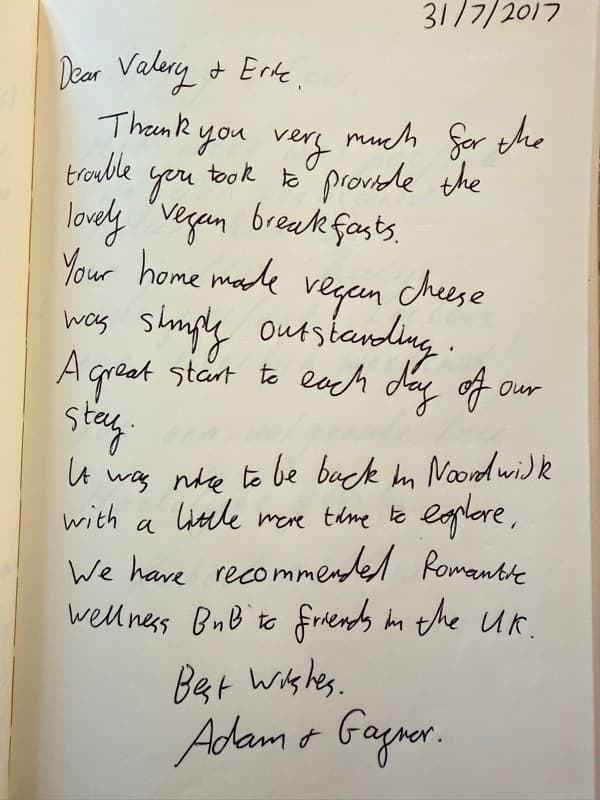 31/7/2017
Dear Valery & Eric,
Thank you very much for the
trouble you took to provide the
lovely vegan breakfasts.
Your home made vegan cheese
was simply outstanding.
A great start to each day of our
stay.
It was nice to be back in Noordwijk
with a little more time to explore,
We have recommended Romantic
Wellness BnB to friends in the UK.
Best Wishes.
Adam &